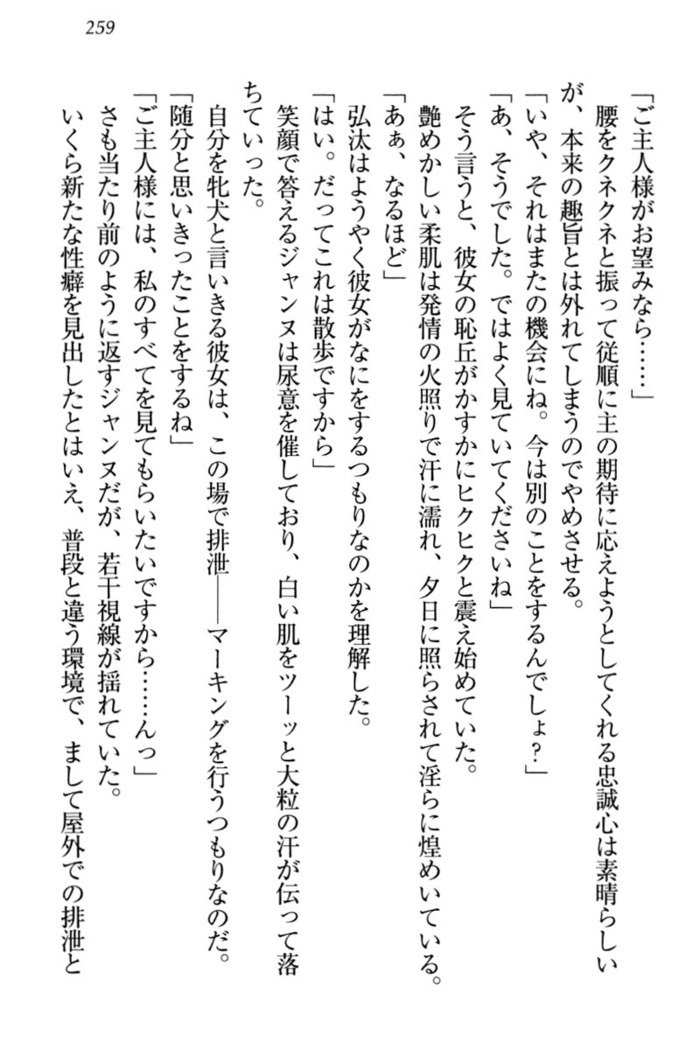 259
「ご主人様がお望みなら……」
腰をクネクネと振って従順に主の期待に応えようとしてくれる忠誠心は素晴らしい
が、本来の趣旨とは外れてしまうのでやめさせる。
「いや、それはまたの機会にね。今は別のことをするんでしょ?」
「あ、そうでした。ではよく見ていてくださいね」
そう言うと、彼女の恥丘がかすかにヒクヒクと震え始めていた。
艶めかしい柔肌は発情の火照りで汗に濡れ、夕日に照らされて淫らに煌めいている。
「あぁ、なるほど」
弘汰はようやく彼女がなにをするつもりなのかを理解した。
「はい。だってこれは散歩ですから」
笑顔で答えるジャンヌは尿意を催しており、白い肌をツーッと大粒の汗が伝って落
ちていった。
自分を牝犬と言いきる彼女は、この場で排泄――マーキングを行うつもりなのだ。
「随分と思いきったことをするね」
「ご主人様には、私のすべてを見てもらいたいですから……んっ」
さも当たり前のように返すジャンヌだが、若干視線が揺れていた。
いくら新たな性癖を見出したとはいえ、普段と違う環境で、まして屋外での排泄と